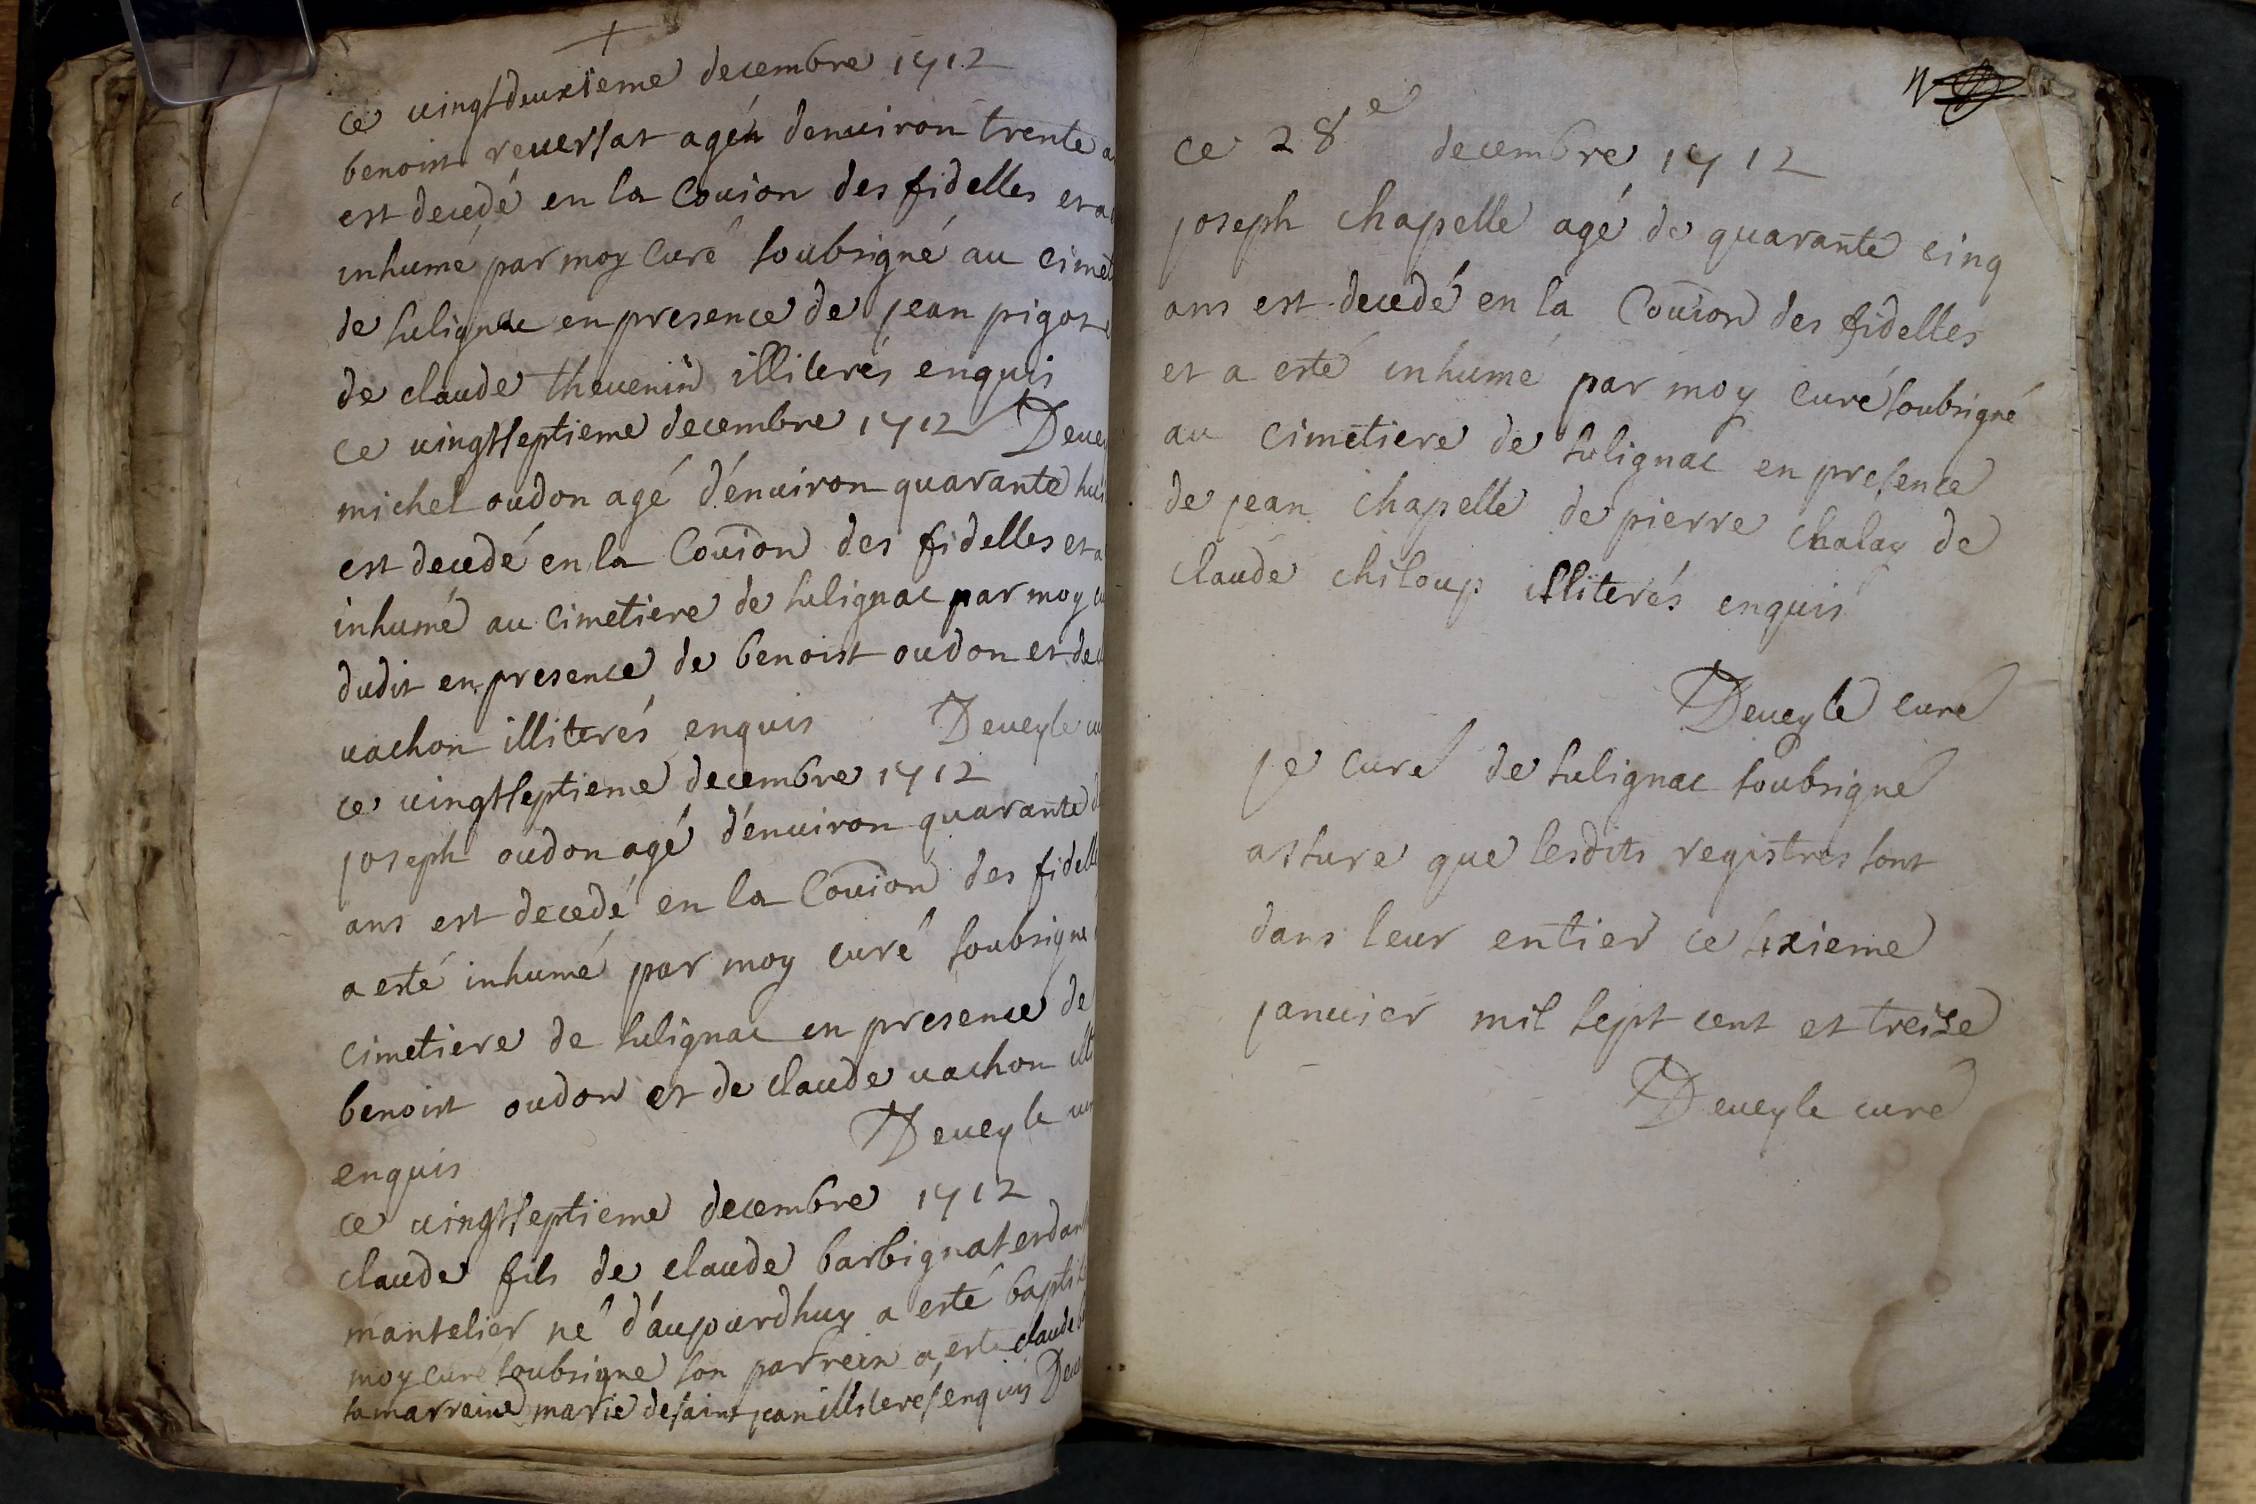 ce vingtdeuxieme decembre 1712
benoist reversat agé denviron trente a
est decedé en la Couion des fidelles et a
inhumé par moy Curé soubsigné au cimet
de sulignac en presence de jean pigot e
de claude thevenin illiterés enquis
ce vingtseptieme decembre 1712 Devey
michel oudon agé d'environ quarante hui
est decedé en la Couion des fidelles et a
inhumé au cimetiere de sulignac par moy cu
dudit en presence de benoist oudon et de
vachon illiterés enquis Deveyle cu
ce vingtseptieme decembre 1712
joseph oudon agé d'environ quarante
ans est decedé en la Couion des fidell
a esté inhumé par moy curé soubsigné
cimetiere de sulignac en presence de
benoist oudon et de claude vachon illi
enquis Deveyle cur
ce vingtseptieme decembre 1712
claude fils de claude barbignat et dan
mantelier né d'aujourdhuy a esté bapti
moy curé soubsigné son parrein a esté claude
sa marraine marie de saint jean illiterés enquis Deve
ce 28e decembre 1712
joseph chapelle agé de quarante cinq
ans est decedé en la Couion des fidelles
et a esté inhumé par moy curé soubsigné
au cimetiere de sulignac en presence
de jean chapelle de pierre chalay de
claude chiloup illiterés enquis
Deveyle curé
je curé de sulignac soubsigné
assure que lesdits registres sont
dans leur entier ce sixieme
janvier mil sept cent et treize
Deveyle curé